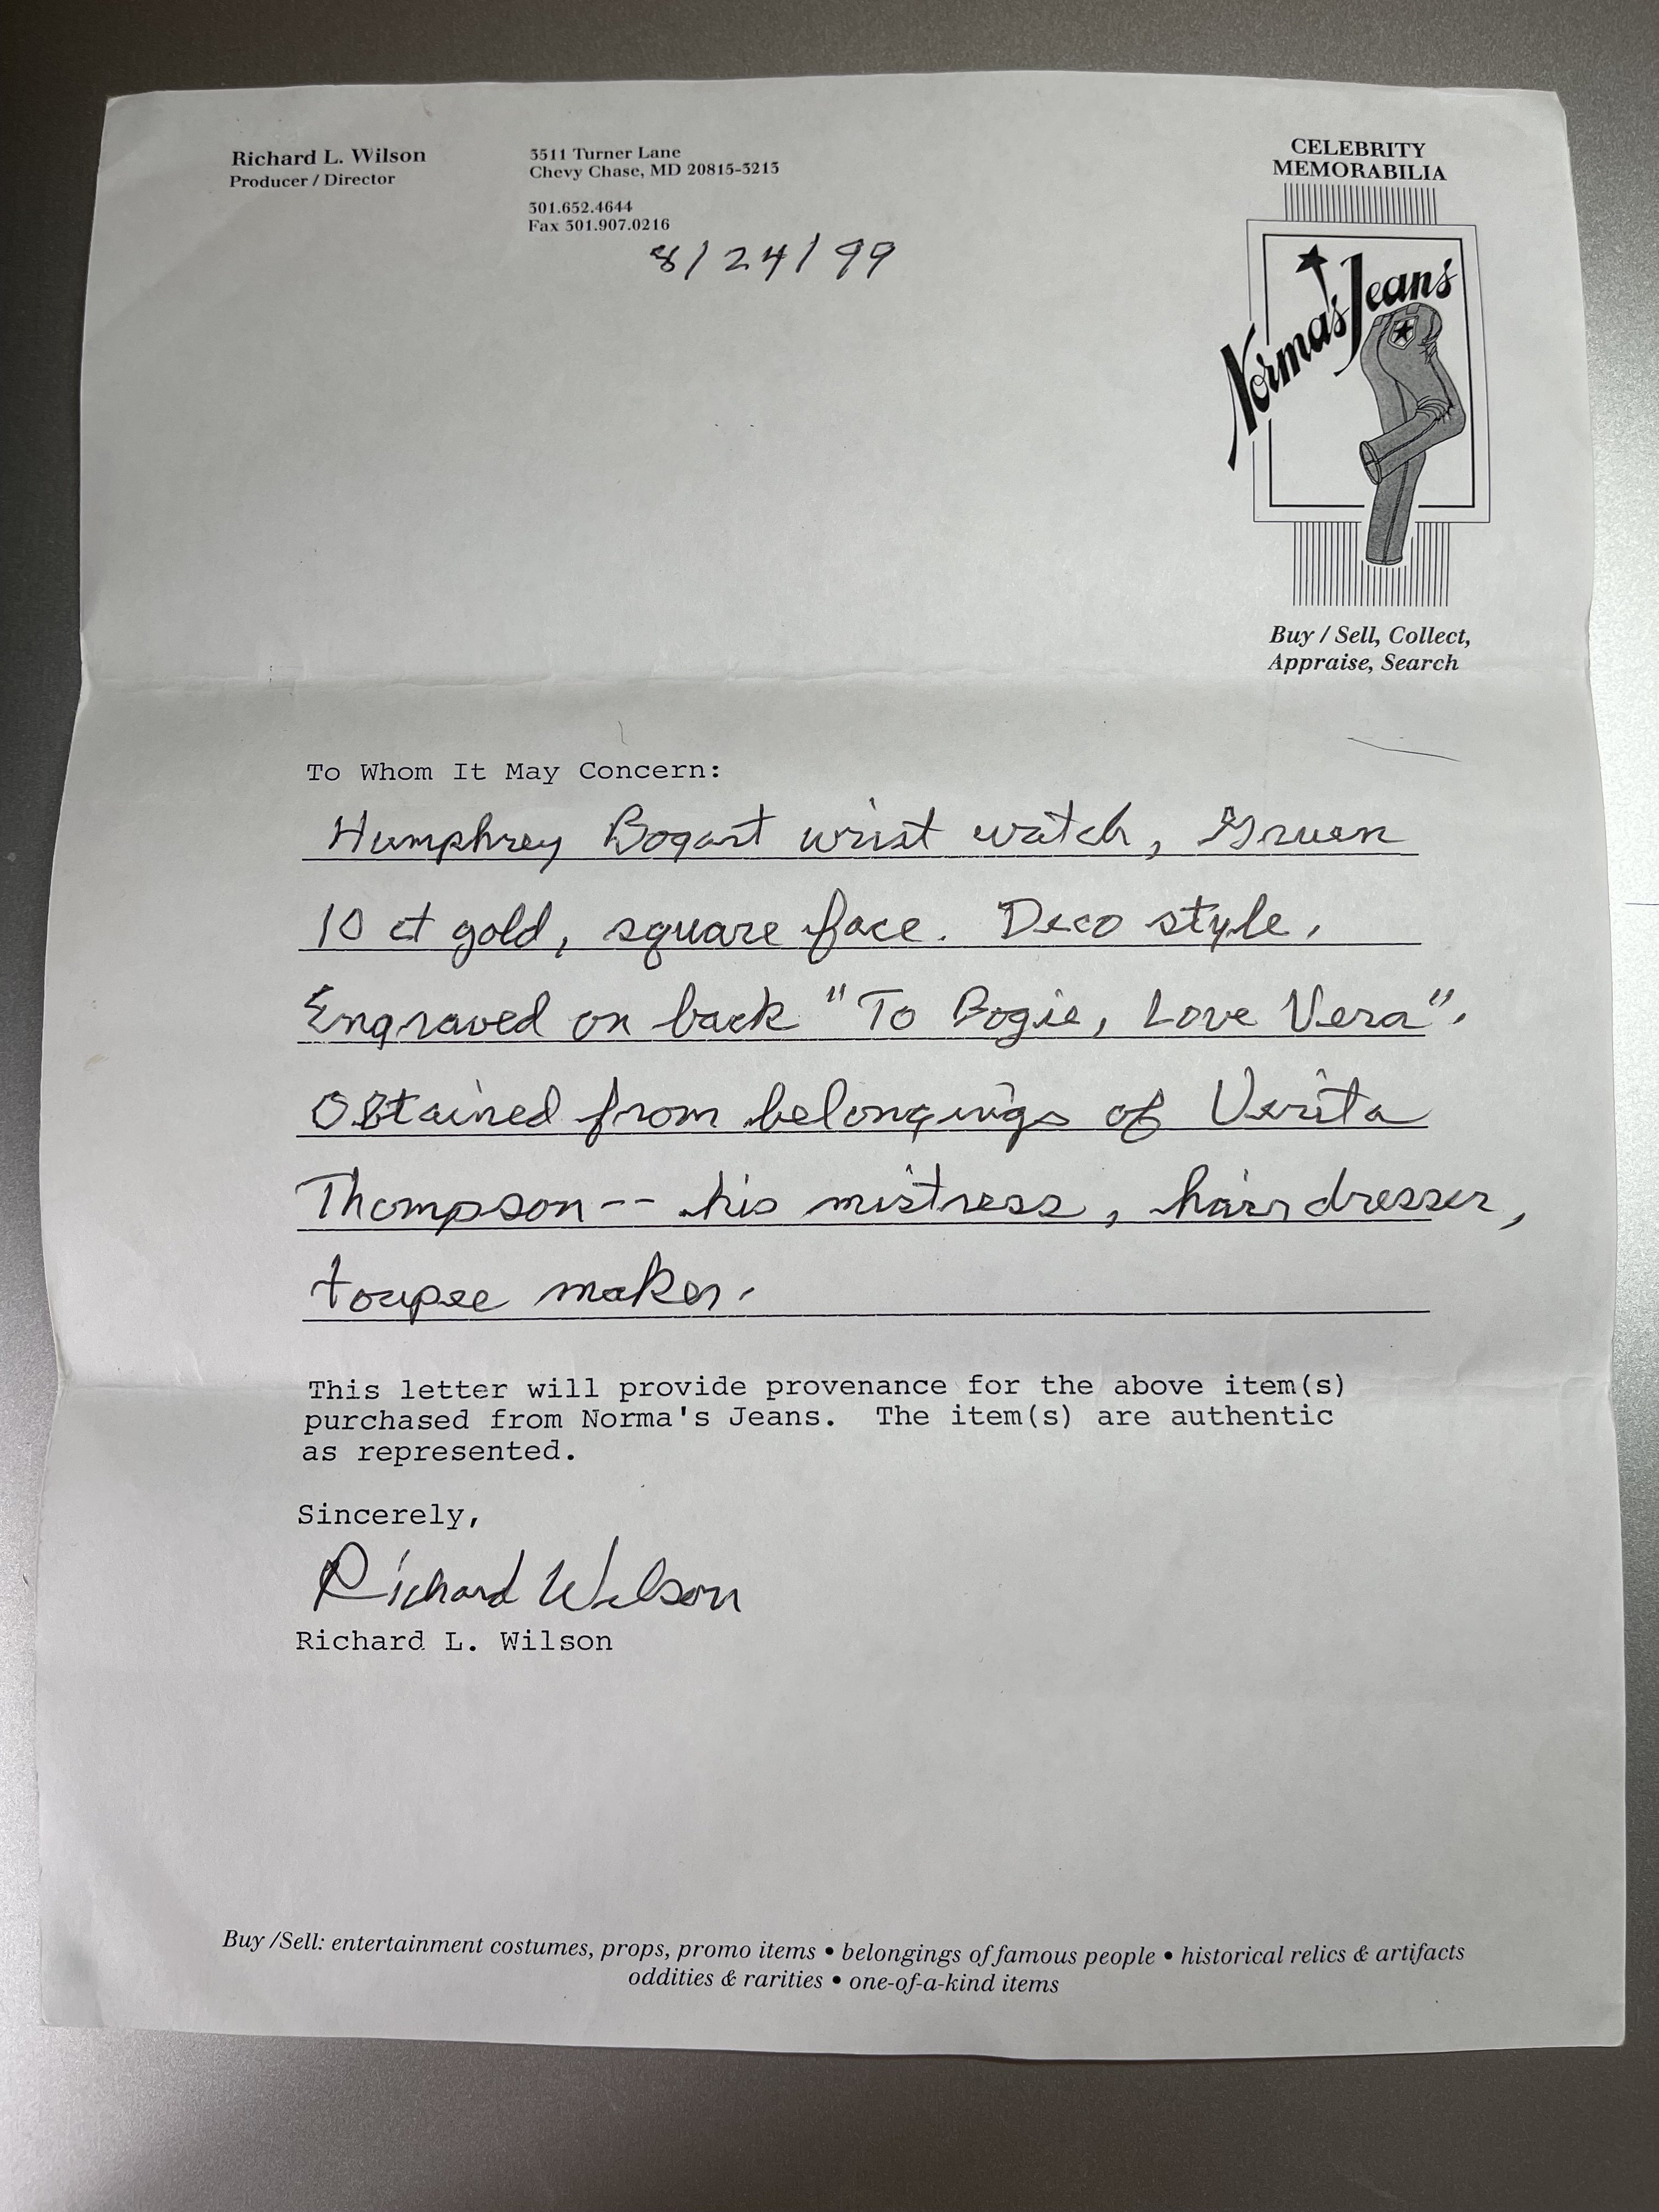 Richard L. Wilson
Producer / Director
3511 Turner Lane
Chevy Chase, MD 20815-3213
301.652.4644
Fax 301.907.0216
8/24/99
CELEBRITY
MEMORABILIA
Norma's Jeans
Buy / Sell, Collect,
Appraise, Search
To Whom It May Concern:
Humphrey Bogart wrist watch, Gruen
10 ct gold, square face. Deco style.
Engraved on back "To Bogie, Love Vera".
Obtained from belongings of Verita
Thompson-- his mistress, hairdresser,
toupee maker.
This letter will provide provenance for the above item(s)
purchased from Norma's Jeans. The item(s) are authentic
as represented.
Sincerely,
Richard Wilson
Richard L. Wilson
Buy /Sell: entertainment costumes, props, promo items • belongings of famous people • historical relics & artifacts
oddities & rarities • one-of-a-kind items